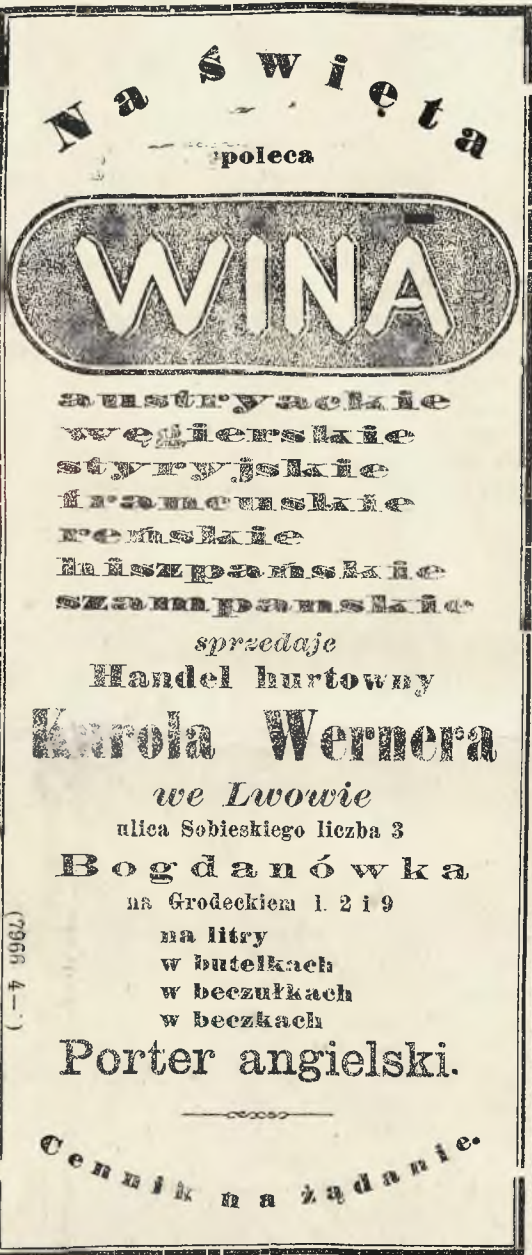 Na święta
poleca
WINA
austryackie
węgierskie
styryjskie
francuskie
reńskie
hiszpańskie
szampanskie
sprzedaje
Handel hurtowny
Karola Wernera
we Lwowie
ulica Sobieskiego liczba 3
Bogdanówka
na Grodeckiem l. 2 i 9
na litry
w butelkach
w beczułkach
w beczkach
Porter angielski.
Cennik na żądanie.
(7966 4— )